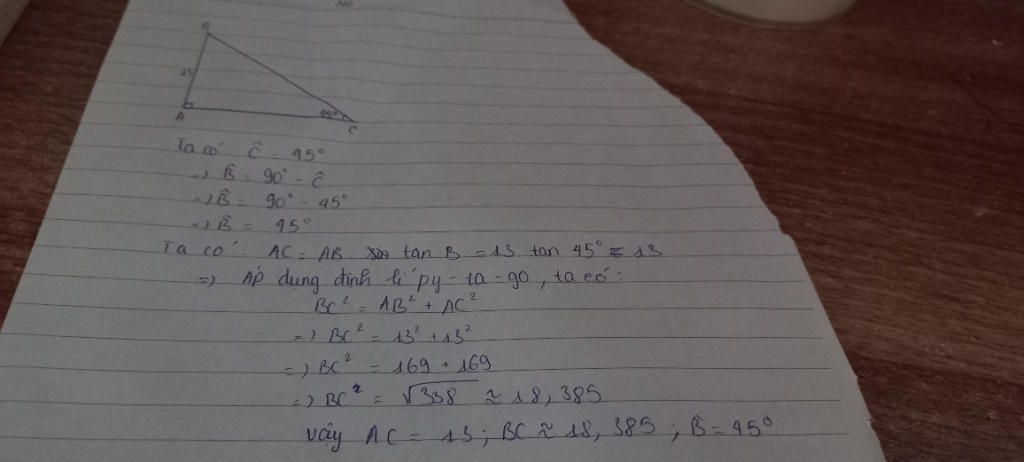 No
B
13
A
45°
C
Ta có Ĉ = 45°
=) B̂ = 90° - Ĉ
=) B̂ = 90° - 45°
=) B̂ = 45°
Ta có: AC = AB tan B = 13 tan 45° = 13
=) Áp dung định lí py-ta-go, ta có:
BC² = AB² + AC²
=) BC² = 13² + 13²
=) BC² = 169 + 169
=) BC² = √338 ≈ 18,385
vậy AC = 13; BC ≈ 18,385; B̂ = 45°